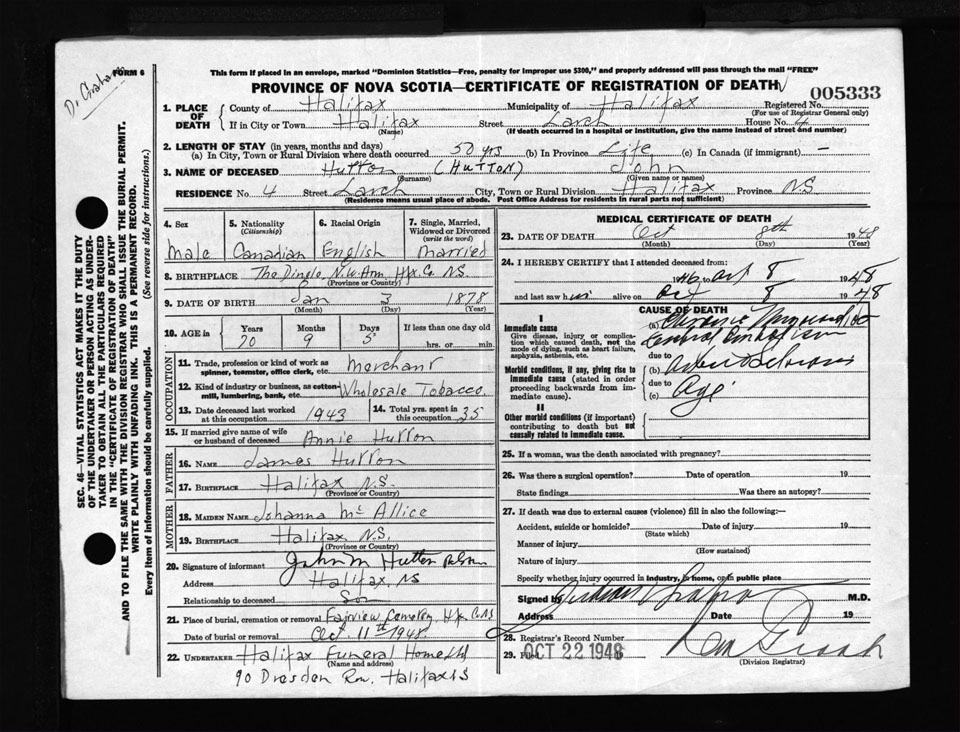 Dr Graham
FORM 6
This form if placed in an envelope, marked "Dominion Statistics—Free, penalty for improper use $300," and properly addressed will pass through the mail "FREE"
PROVINCE OF NOVA SCOTIA—CERTIFICATE OF REGISTRATION OF DEATH
005333
1. PLACE OF DEATH
County of Halifax Municipality of Halifax Registered No.
(For use of Registrar General only)
If in City or Town Halifax Street Larch House No. 4
(Name) (If death occurred in a hospital or institution, give the name instead of street and number)
2. LENGTH OF STAY (in years, months and days)
(a) In City, Town or Rural Division where death occurred 50 yrs (b) In Province Life (c) In Canada (if immigrant) —
3. NAME OF DECEASED Hutton (HUTTON) John
(Surname) (Given name or names)
RESIDENCE No. 4 Street Larch City, Town or Rural Division Halifax Province N.S.
(Residence means usual place of abode. Post Office Address for residents in rural parts not sufficient)
4. Sex
Male
5. Nationality
(Citizenship)
Canadian
6. Racial Origin
English
7. Single, Married, Widowed or Divorced
(write the word)
Married
8. BIRTHPLACE The Dingle, N.W. Arm, Hfx Co N.S.
(Province or Country)
9. DATE OF BIRTH Jan 3 1878
(Month) (Day) (Year)
10. AGE in
Years Months Days If less than one day
70 9 5 hrs. or min.
OCCUPATION
11. Trade, profession or kind of work as spinner, teamster, office clerk, etc. Merchant
12. Kind of industry or business, as cotton-mill, lumbering, bank, etc. Wholesale Tobacco
13. Date deceased last worked at this occupation 1943
14. Total yrs. spent in this occupation 35
15. If married give name of wife or husband of deceased Annie Hutton
FATHER
16. NAME James Hutton
17. BIRTHPLACE Halifax N.S.
(Province or Country)
MOTHER
18. MAIDEN NAME Johanna McAllice
19. BIRTHPLACE Halifax N.S.
(Province or Country)
20. Signature of informant John M Hutton
Address Halifax, NS
Relationship to deceased Son
21. Place of burial, cremation or removal Fairview Cemetery, Hfx Co NS
Date of burial or removal Oct 11th 1948
22. UNDERTAKER Halifax Funeral Home Ltd
(Name and address)
90 Dresden Row, Halifax NS
MEDICAL CERTIFICATE OF DEATH
23. DATE OF DEATH Oct 8th 1948
(Month) (Day) (Year)
24. I HEREBY CERTIFY that I attended deceased from:
1946 to Oct 8 1948
and last saw him alive on Oct 8 1948
CAUSE OF DEATH
I
Immediate cause
Give disease, injury or complication which caused death, not the mode of dying, such as heart failure, asphyxia, asthenia, etc.
(a) Chronic Myocarditis
Cerebral Embolism
due to
Morbid conditions, if any, giving rise to immediate cause (stated in order proceeding backwards from immediate cause).
(b) Arterio Sclerosis
due to
(c) Age
II
Other morbid conditions (if important) contributing to death but not causally related to immediate cause.
25. If a woman, was the death associated with pregnancy?
26. Was there a surgical operation? Date of operation 19
State findings Was there an autopsy?
27. If death was due to external causes (violence) fill in also the following:—
Accident, suicide or homicide? Date of injury 19
(State which)
Manner of injury
(How sustained)
Nature of injury
Specify whether injury occurred in industry, in home, or in public place
Signed by M.D.
Address Date 19
28. Registrar's Record Number
29. Filed OCT 22 1948
(Division Registrar)
SEC. 46—VITAL STATISTICS ACT MAKES IT THE DUTY
OF THE UNDERTAKER OR PERSON ACTING AS UNDER-
TAKER TO OBTAIN ALL THE PARTICULARS REQUIRED
IN THE "CERTIFICATE OF REGISTRATION OF DEATH"
AND TO FILE THE SAME WITH THE DIVISION REGISTRAR WHO SHALL ISSUE THE BURIAL PERMIT.
WRITE PLAINLY WITH UNFADING INK. THIS IS A PERMANENT RECORD.
Every item of information should be carefully supplied. (See reverse side for instructions.)